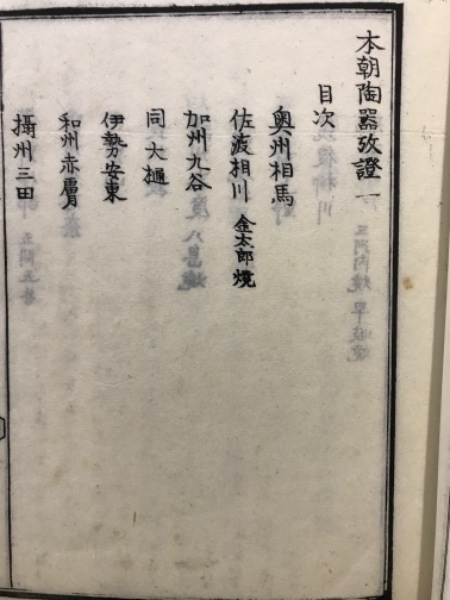 本朝陶器攷證一
目次
奥州相馬
佐渡相川 金太郎焼
加州九谷
同大樋
伊勢安東
和州赤膚
攝州三田